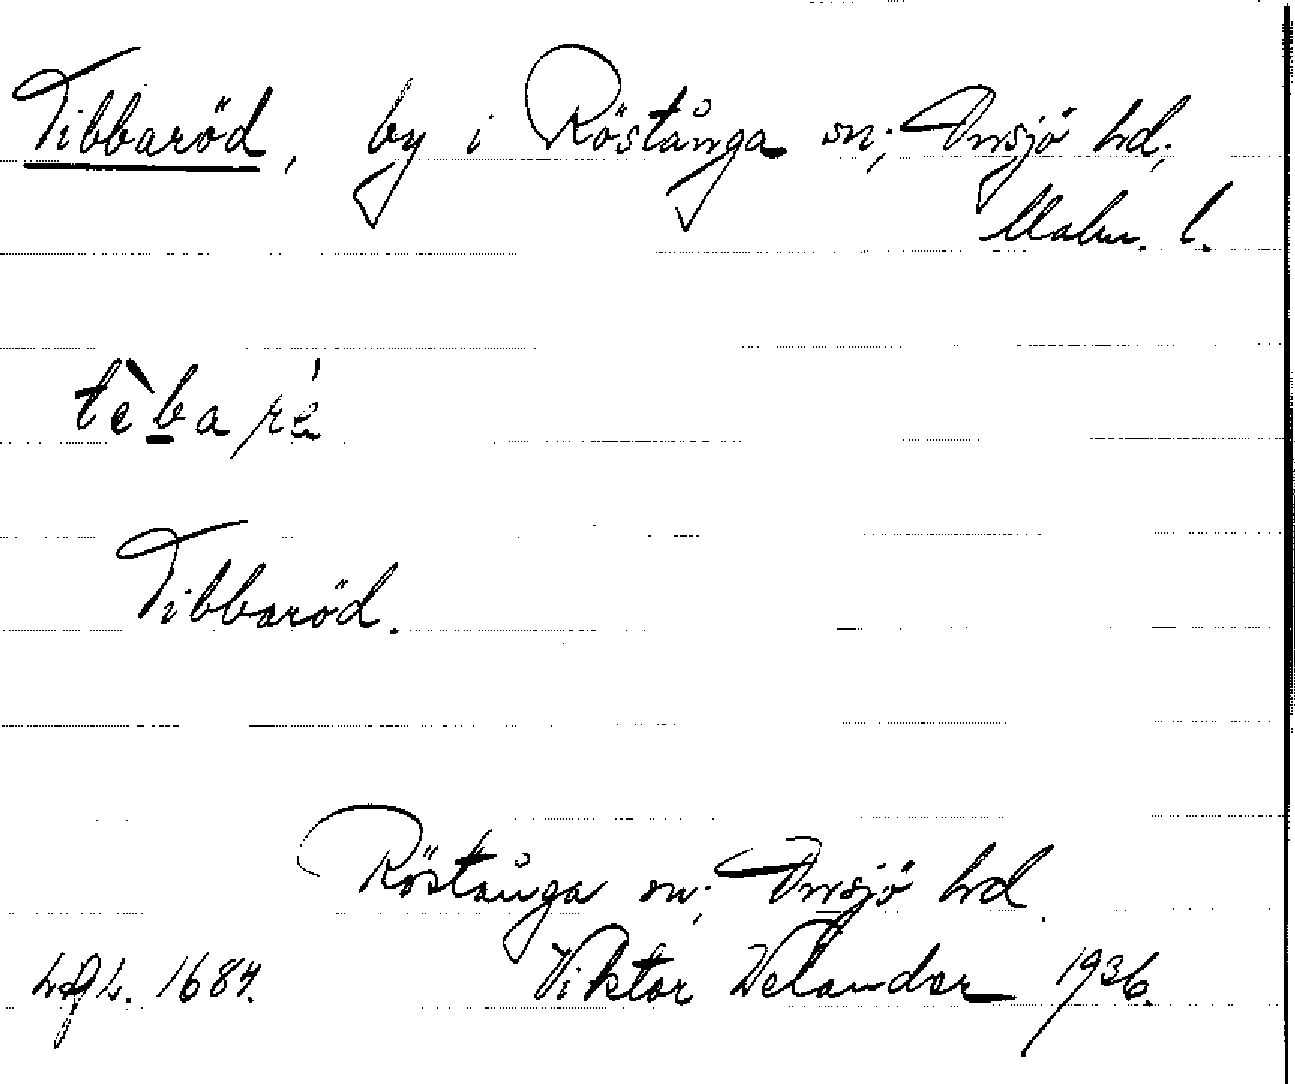 Tibbaröd, by i Röstånga sn; Onsjö hd;
Malm. l.
tèbaré
Tibbaröd.
Röstånga sn; Onsjö hd.
1684. Viktor Welander 1936.